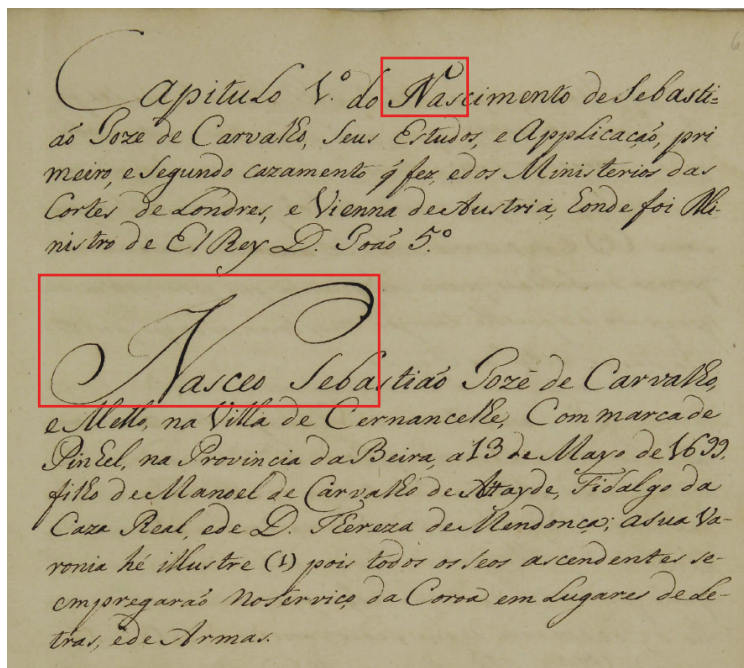 Capitulo 1.º do Nascimento de Sebasti=
aõ Joze de Carvalho, Seus Estudos, e Applicaçaõ, pri
meiro, e Segundo cazamento q̃ fez, e dos Ministerios das
Cortes de Londres, e Vienna de Austria, honde foi Mi-
nistro de El Rey D. Joaõ 5.º
Nasceo Sebastiaõ Jozé de Carvalho,
e Mello, na Villa de Cernancelhe, Com marca de
Pinhel, na Provincia da Beira, a 13 de Mayo de 1699.
filho de Manoel de Carvalho de Attayde, Fidalgo da
Caza Real, e de D. Thereza de Mendonca; a sua Va-
ronia hé illustre (1) pois todos os seos ascendentes se-
empregaraõ no serviço da Coroa em Lugares de Le-
tras, e de Armas.